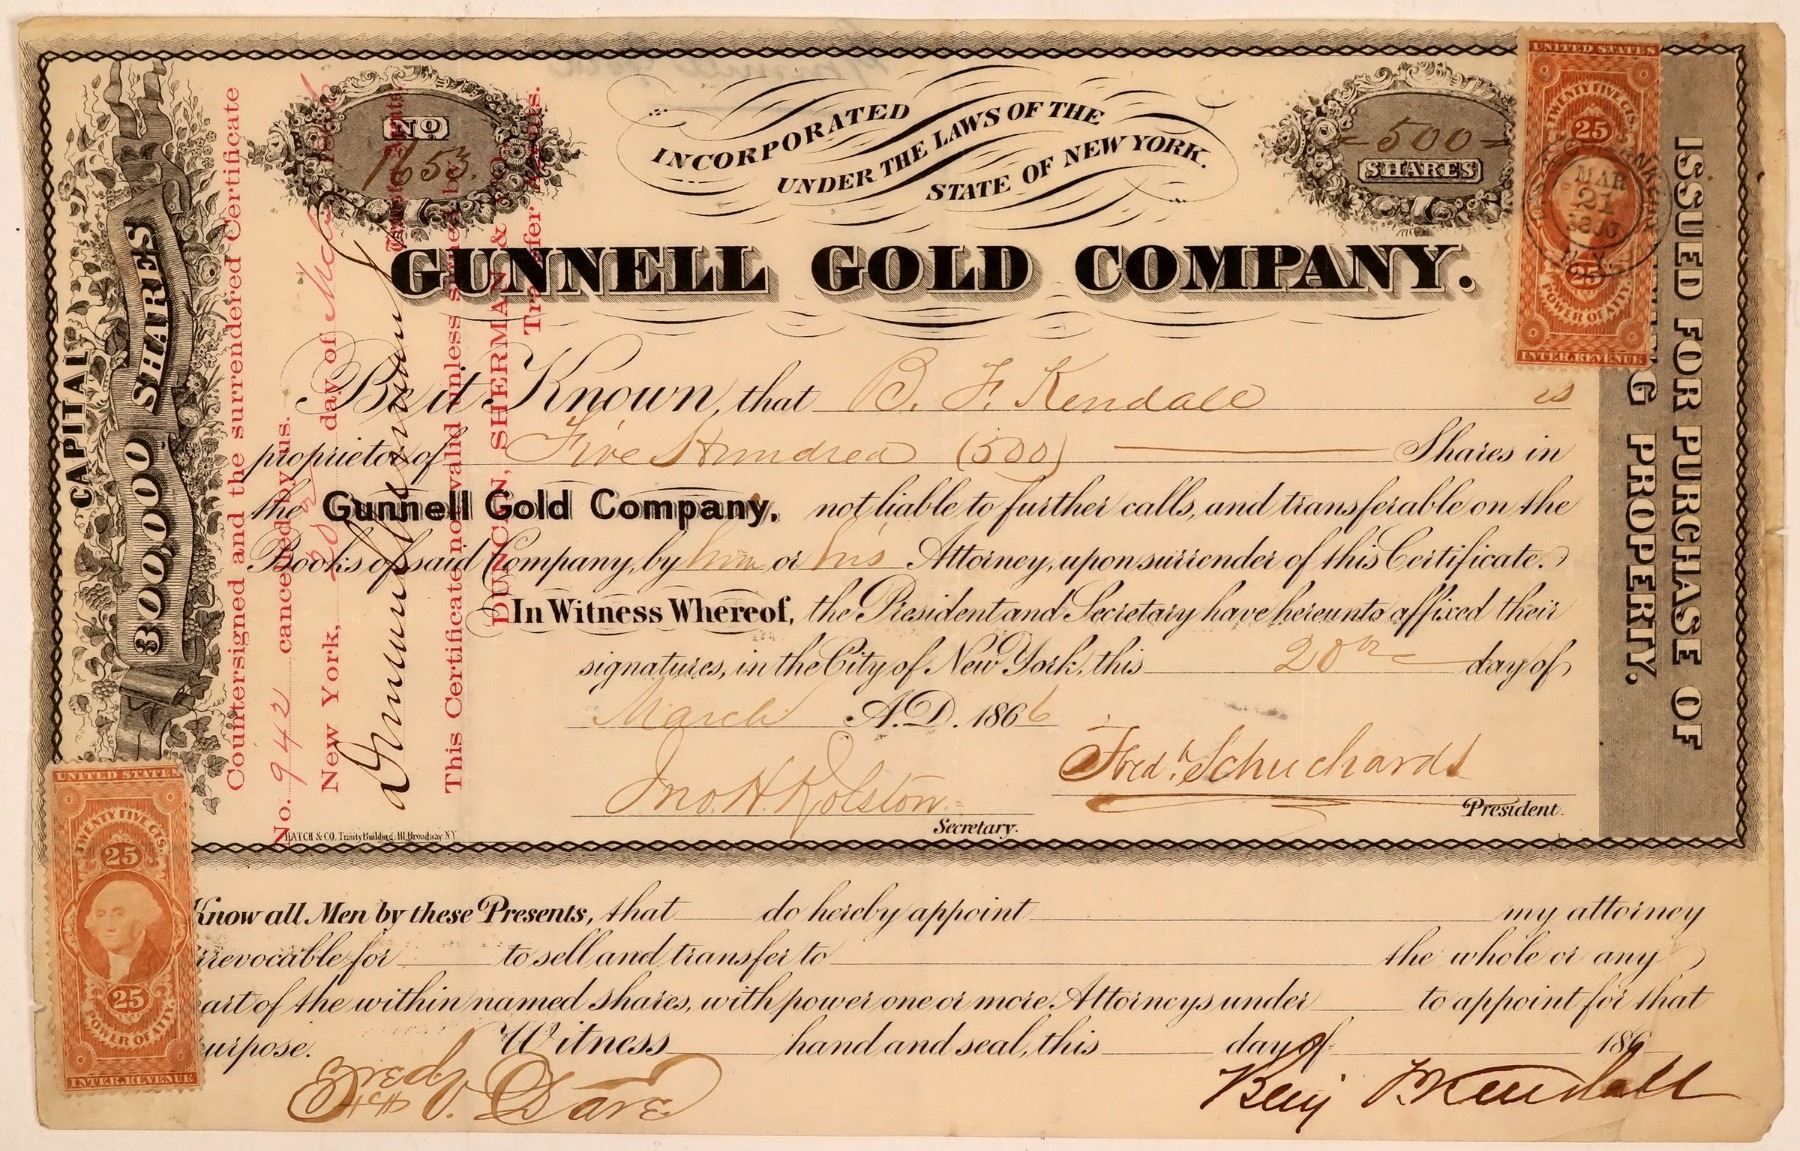 INCORPORATED
UNDER THE LAWS OF THE
STATE OF NEW YORK.
No
1653.
500
SHARES
GUNNELL GOLD COMPANY.
Be it Known, that B. F. Kendall is
proprietor of Five Hundred (500) Shares in
the Gunnell Gold Company, not liable to further calls, and transferable on the
Books of said Company, by him or his Attorney, upon surrender of this Certificate.
In Witness Whereof, the President and Secretary have hereunto affixed their
signatures, in the City of New York, this 20th day of
March A.D. 1866
Jno. H. Rolston
Secretary.
Fredk Schuchardt
President.
HATCH & CO. Trinity Building, 111 Broadway NY
CAPITAL
300,000 SHARES
ISSUED FOR PURCHASE OF
PROPERTY.
Countersigned and the surrendered Certificate
No. 942 cancelled by us.
New York, 20th day of Mch 1866
This Certificate not valid unless signed by
DUNCAN, SHERMAN &
Transfer Agents.
UNITED STATES
TWENTY FIVE CTS.
25
MAR
21
25
POWER OF ATTY.
INTER. REVENUE
UNITED STATES
TWENTY FIVE CTS.
25
25
POWER OF ATTY.
INTER. REVENUE
Know all Men by these Presents, that do hereby appoint my attorney
irrevocable for to sell and transfer to the whole or any
part of the within named shares, with power one or more Attorneys under to appoint for that
purpose. Witness hand and seal, this day of 186
Benj F Kendall